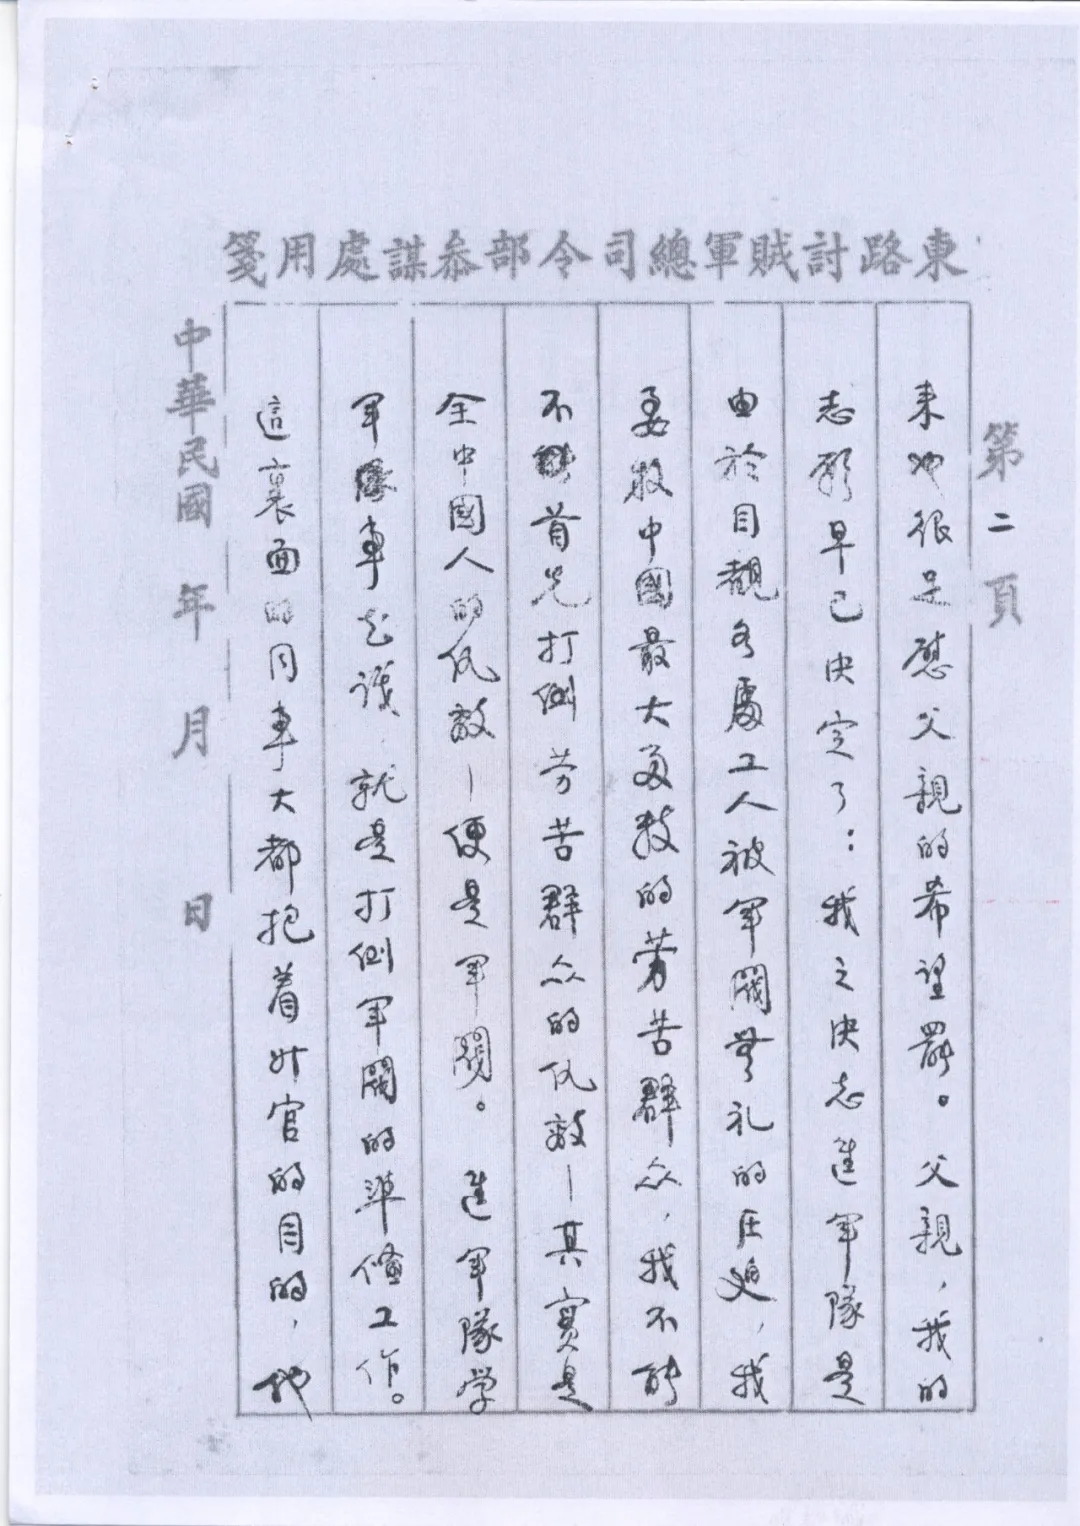 東路討賊軍總司令部叅謀處用箋
第二頁
来也很足慰父親的希望罷。父親，我的
志願早已决定了：我之决志進軍隊是
由於目覩各處工人被軍閥無礼的压迫，我
要救中國最大多数的劳苦群众，我不能
不首先打倒劳苦群众的仇敌—其實是
全中國人的仇敌—便是軍閥。進軍隊学
軍事知識，就是打倒軍閥的準備工作。
這裏面的同事大都抱着升官的目的，他
中華民國　年　月　日